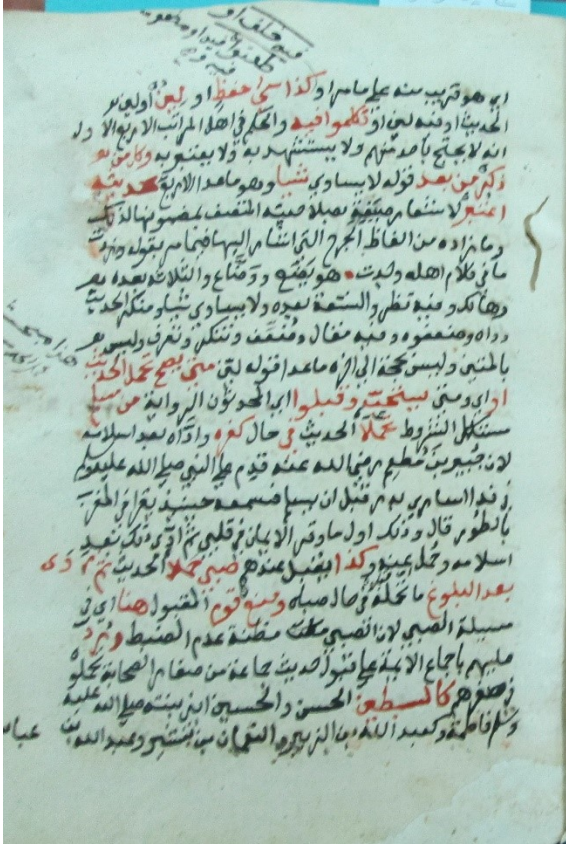 فيه خلف او
طعنوا فيه او مطعون
فيه وبه
اي هو قريب منه علي ما مر او كذا سيئ حفظ او لين اولين
الحديث او فيه لين او تكلموا فيه والحكم في اهل المراتب الاربع الاول
انه لا يحتج باحد منهم ولا يستشهد به ولا يعتبر به وكل من
ذكر من بعد قوله لا يساوي شيا وهو ما عدا الاربع بحديثه
اعتبر لاشعار صيغته بصلاحيته المتصف بمضمونها لذلك
وما زاده من الفاظ الجرح التي اشار اليها فيما مر بقوله وزدت
ما في كلام اهله وجدت هو يضع ووضاع والثلاثة بعده
وهالك وفيه نظر والستة بعده ولا يساوي شيا ومنكر الحديث
وواه وضعفوه وفيه مقال وضعف وتنكر وتعرف وليس
بالمتين وليس بحجة الي اخره ما عدا قوله لين متي يصح تحمل الحديث
او اي ومتي يستحب وقبلوا اي المحدثون الرواية من مسلم
مستكمل الشروط تحملا الحديث في حال كفره واداه بعد اسلامه
لان جبير بن مطعم رضي الله عنه قدم علي النبي صلي الله عليه وسلم
في فدا اساري بدر قبل ان يسلم فسمعه حينئذ يقرا في المغرب
بالطور قال وذلك اول ما وقر الايمان في قلبي ثم ادي ذلك بعد
اسلامه وحمل عنه وكذا يقبل عندهم صبي حملا الحديث ثم روي
بعد البلوغ ما تحمله في حال صباه ومنع قوم القبول هنا اي في
مسيلة الصبي لان الصبي مظنة عدم الضبط ورد
عليهم باجماع الايمة علي قبول حديث جماعة من صغار الصحابة تحملوه
في صغرهم كالسبطين الحسن والحسين ابني بنته صلي الله عليه
وسلم فاطمة وكعبد الله بن الزبير والنعمان بن بشير وعبد الله بن
عباس